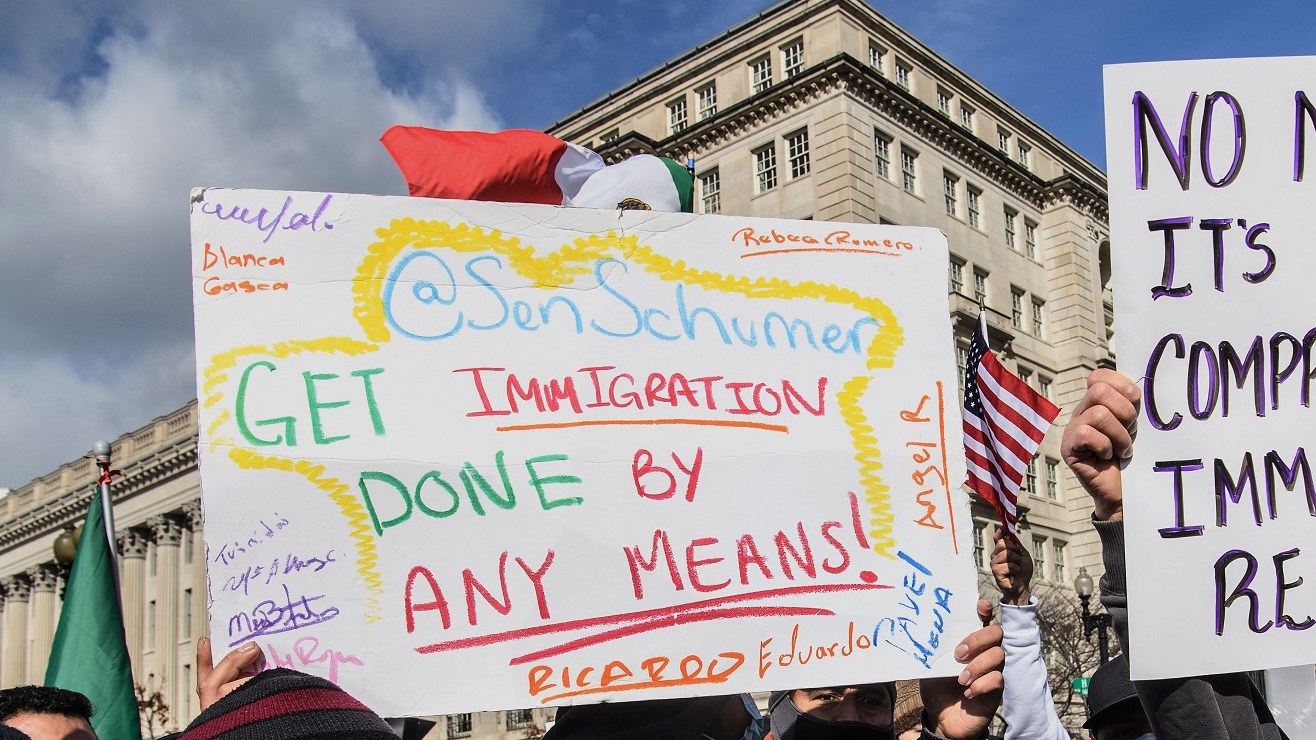 Blanca
Gasca
Rebeca Romero.
@SenSchumer
GET IMMIGRATION
DONE BY
ANY MEANS!
Angel R
RICARDO Eduardo
MENA
NO
IT'S
COMP
IMM
RE